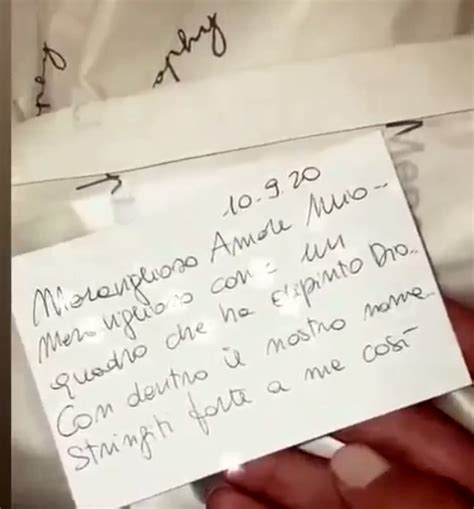 aphy
10.9.20
Meraviglioso Amore Mio..
Meraviglioso come un
quadro che ha dipinto Dio..
Con dentro il nostro nome..
Stringiti forte a me così